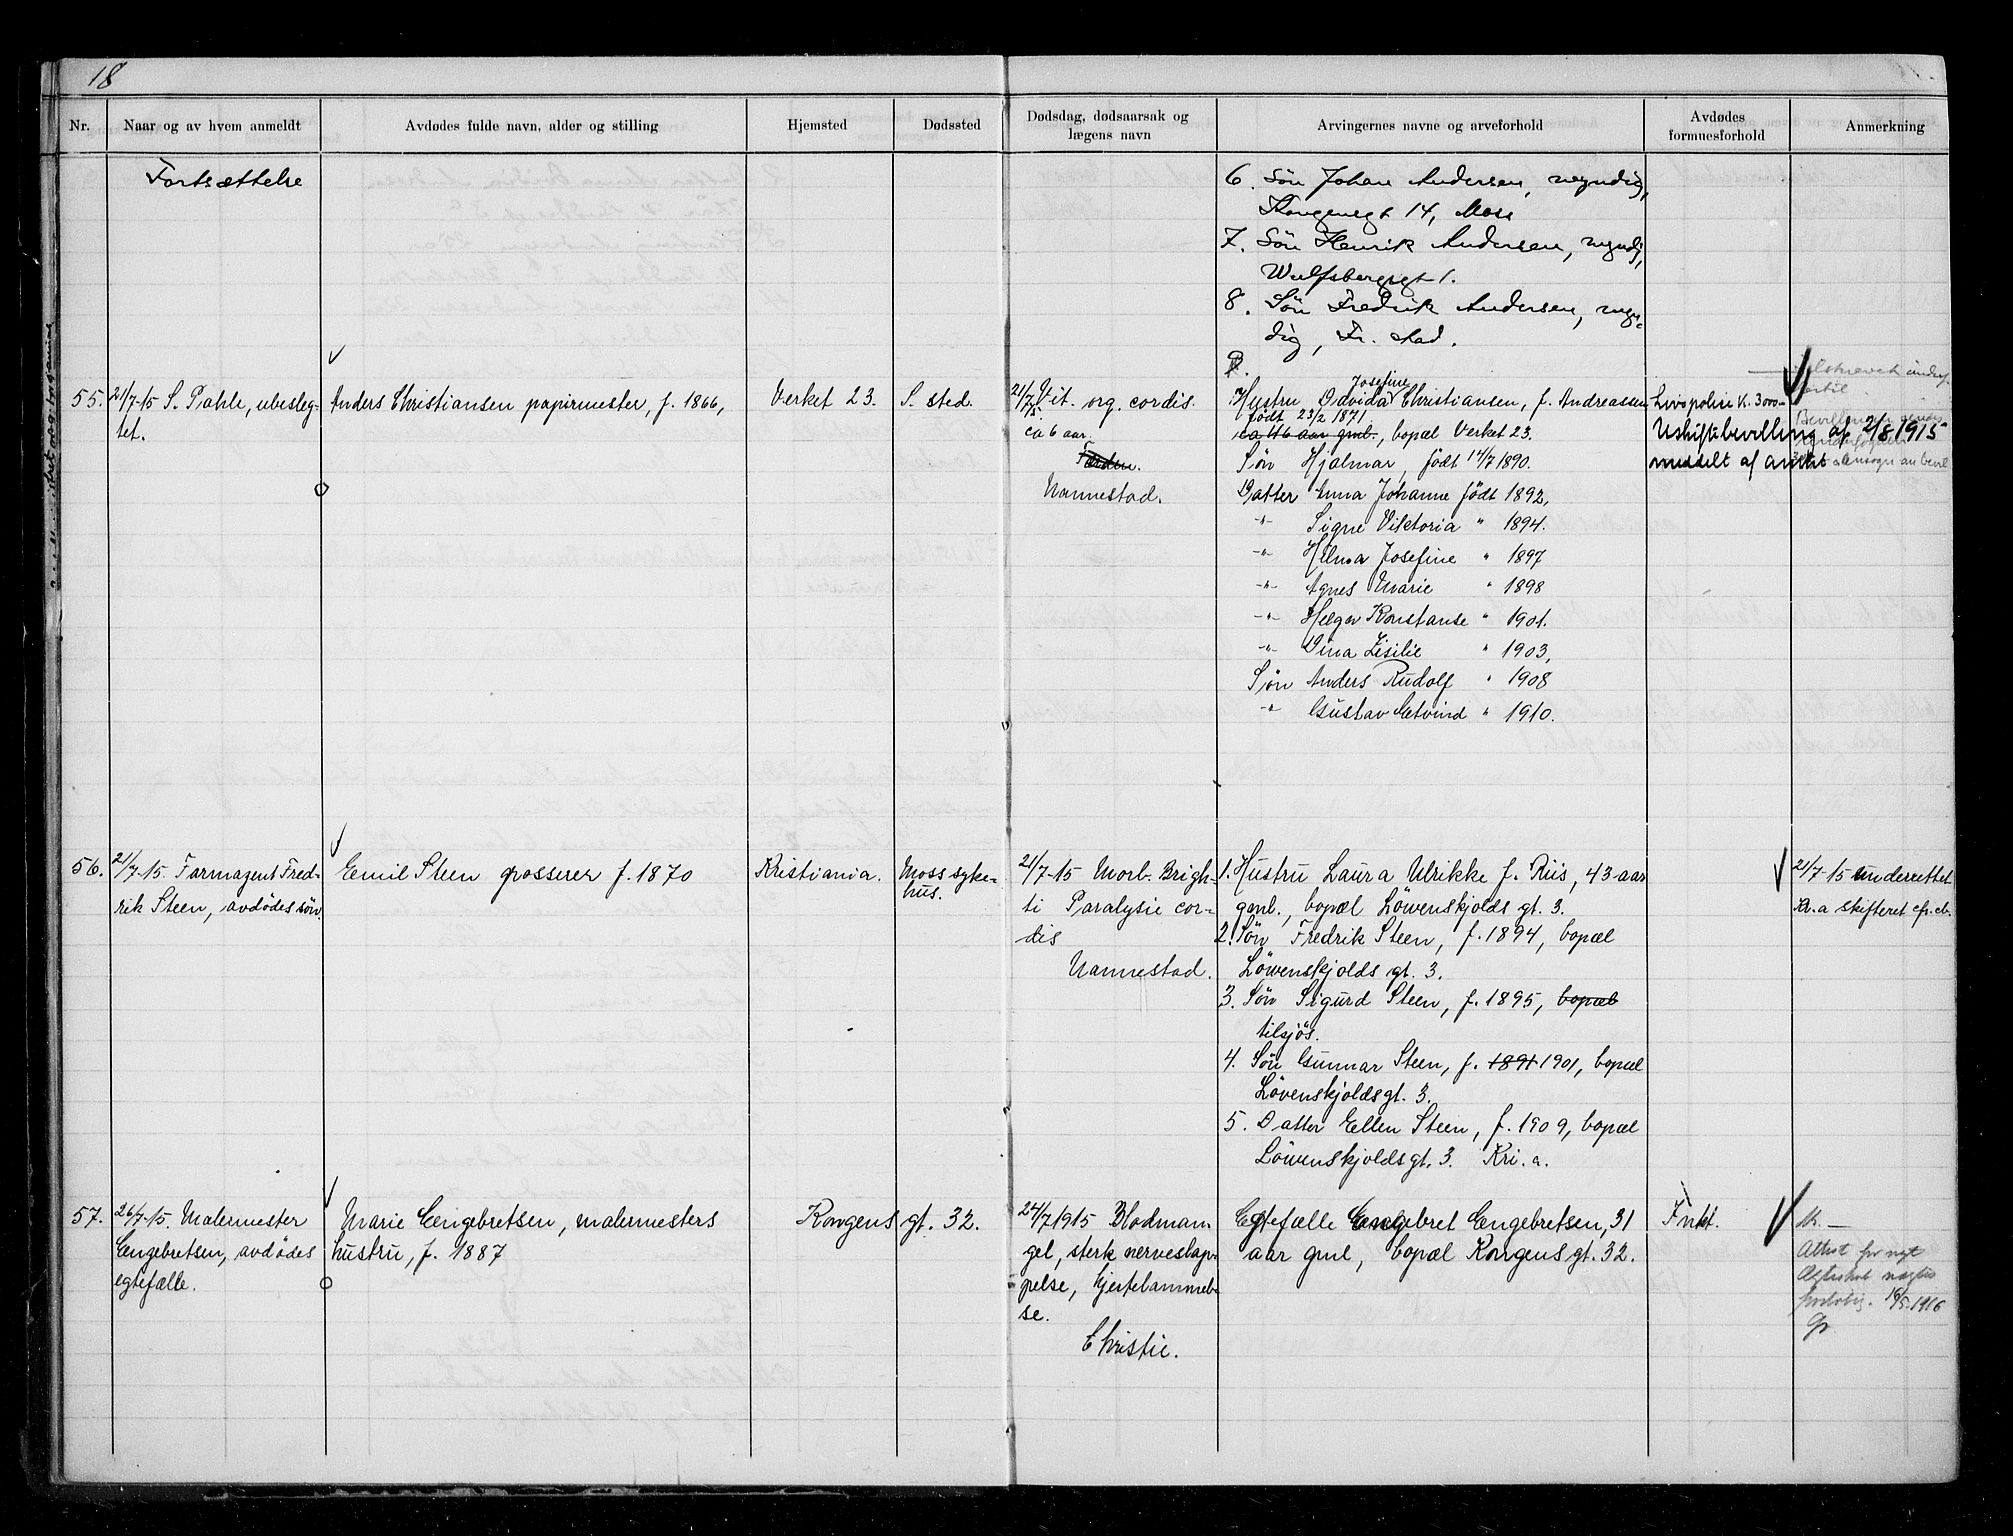 18
Nr. Naar og av hvem anmeldt Avdødes fulde navn, alder og stilling Hjemsted Dødssted Dødsdag, dødsaarsak og lægens navn Arvingernes navne og arveforhold Avdødes formuesforhold Anmerkning
Fortsættelse
6. Søn Johan Andersen, myndig,
Kongensgt 14, Moss
7. Søn Henrik Andersen, myndig,
Wulfsbergsgt 1.
8. Søn Fredrik Andersen, myn-
dig, Fr. stad.
55. 21/7-15 S. Pahle, ubesleg-
tet.
Anders Christiansen papirmester, f. 1866,
Verket 23.
S. sted.
21/7 15 Vit. org. cordis.
ca 6 aar.
Nannestad.
Josefine
Hustru Odvida Christiansen, f. Andreassen
født 23/2 1871
ca 46 aar gml., bopæl Verket 23.
Søn Hjalmar, født 14/7 1890.
Datter Anna Johanne født 1892,
-"- Signe Viktoria " 1894.
-"- Hilma Josefine " 1897
-"- Agnes Marie " 1898
-"- Helga Konstanse " 1901.
-"- Dina Zisilie " 1903,
Søn Anders Rudolf " 1908
-"- Gustav Ætvind " 1910.
Livspolise K. 3000-
Uskiftebevilling af 2/8 1915
meddelt af amtet
56. 21/7-15. Farmagent Fred-
rik Steen, avdødes søn.
Emil Steen grosserer f. 1870
Kristiania.
Moss syke-
hus.
21/7-15 Morb. Brigh-
ti Paralysie cor-
dis
Nannestad.
1. Hustru Laura Ulrikke f. Riis, 43 aar
gml., bopæl Löwenskjolds gt. 3.
2. Søn Fredrik Steen, f. 1894, bopæl
Löwenskjolds gt. 3.
3. Søn Sigurd Steen, f. 1895, bopæl
tilsjös.
4. Søn Gunnar Steen, f. 1891 1901, bopæl
Lövenskjoldsgt. 3.
5. Datter Ellen Steen, f. 1909, bopæl
Löwenskjoldsgt. 3. Kri.a.
21/7-15 underrettet
Kr.a skifteret cfr. cb.
57. 26/7-15. Malermester
Engebretsen, avdødes
egtefælle.
Marie Engebretsen, malermesters
hustru, f. 1887
Kongens gt. 32.
24/7 1915 Blodman-
gel, sterk nerveslap-
pelse, hjertelammel-
se.
Christie.
Egtefælle Engebret Engebretsen, 31
aar gml, bopæl Kongens gt. 32.
Fnkt.
Attest for nyt
Ægteskab
16/5 1916